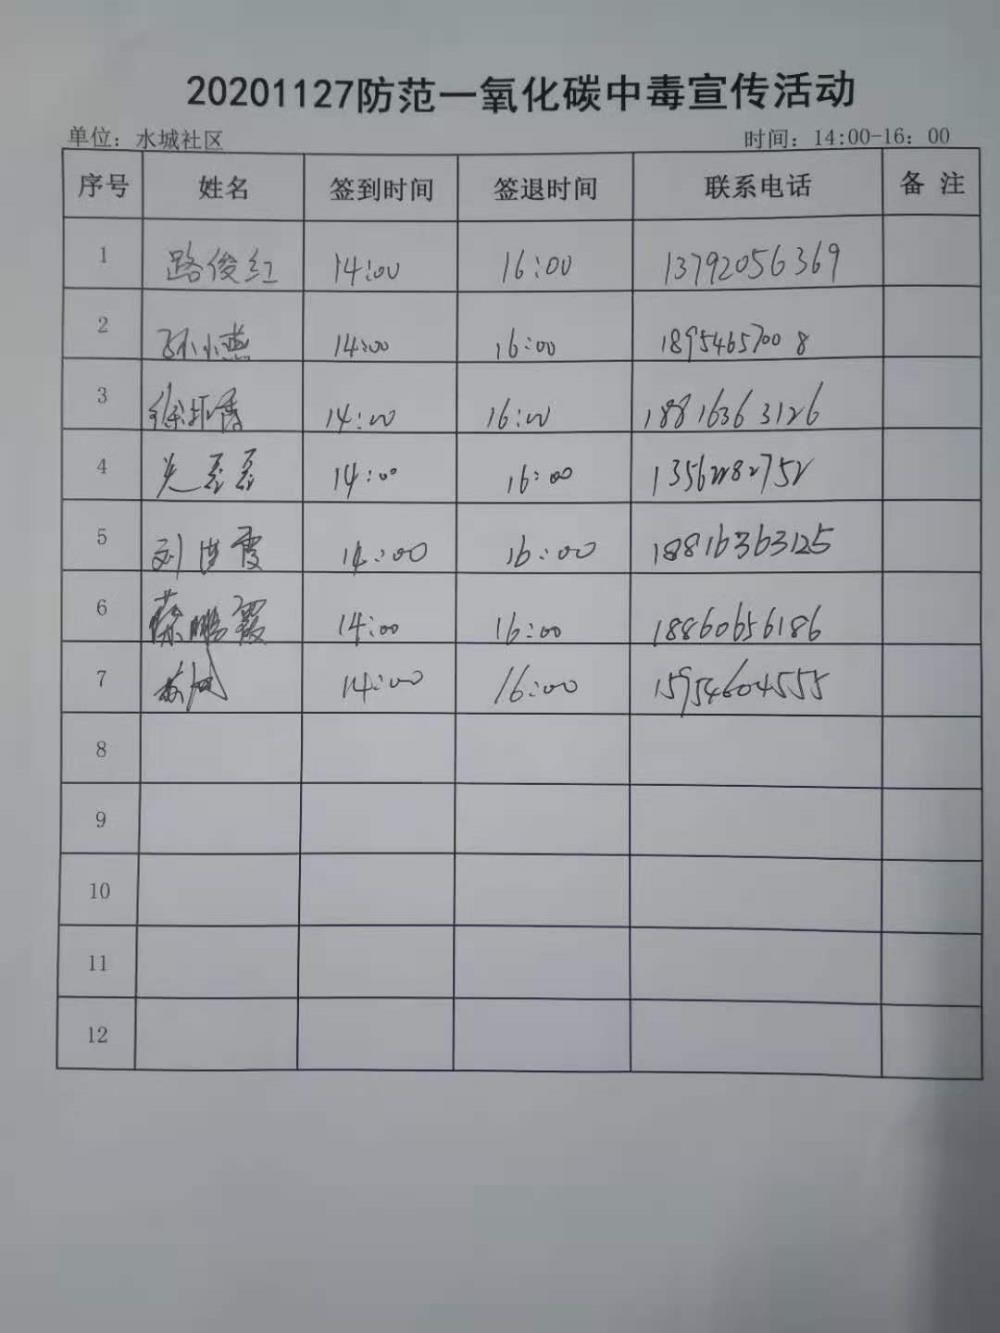 20201127防范一氧化碳中毒宣传活动
单位：水城社区 时间：14:00-16：00
序号 姓名 签到时间 签退时间 联系电话 备 注
1 路俊红 14:00 16:00 13792056369
2 孙小燕 14:00 16:00 18954657008
3 14:00 16:00 18816363126
4 14:00 16:00
5 刘洪霞 14:00 16:00 18816363125
6 蔡鹏霞 14:00 16:00 18860656186
7 14:00 16:00 15954604555
8
9
10
11
12